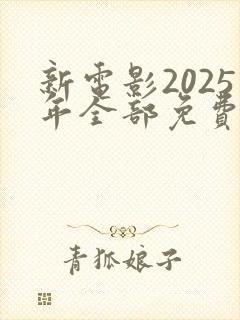 新電影2025
年全部免費
青狐娘子